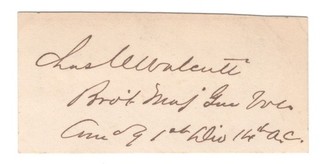 Chas C Walcutt
Bvt Maj Gen Vols
Com'd'g 1st Div 14th A.C.